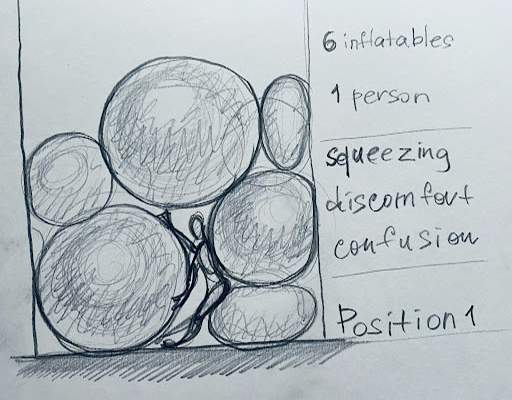 6 inflatables
1 person
squeezing
discomfort
confusion
Position 1